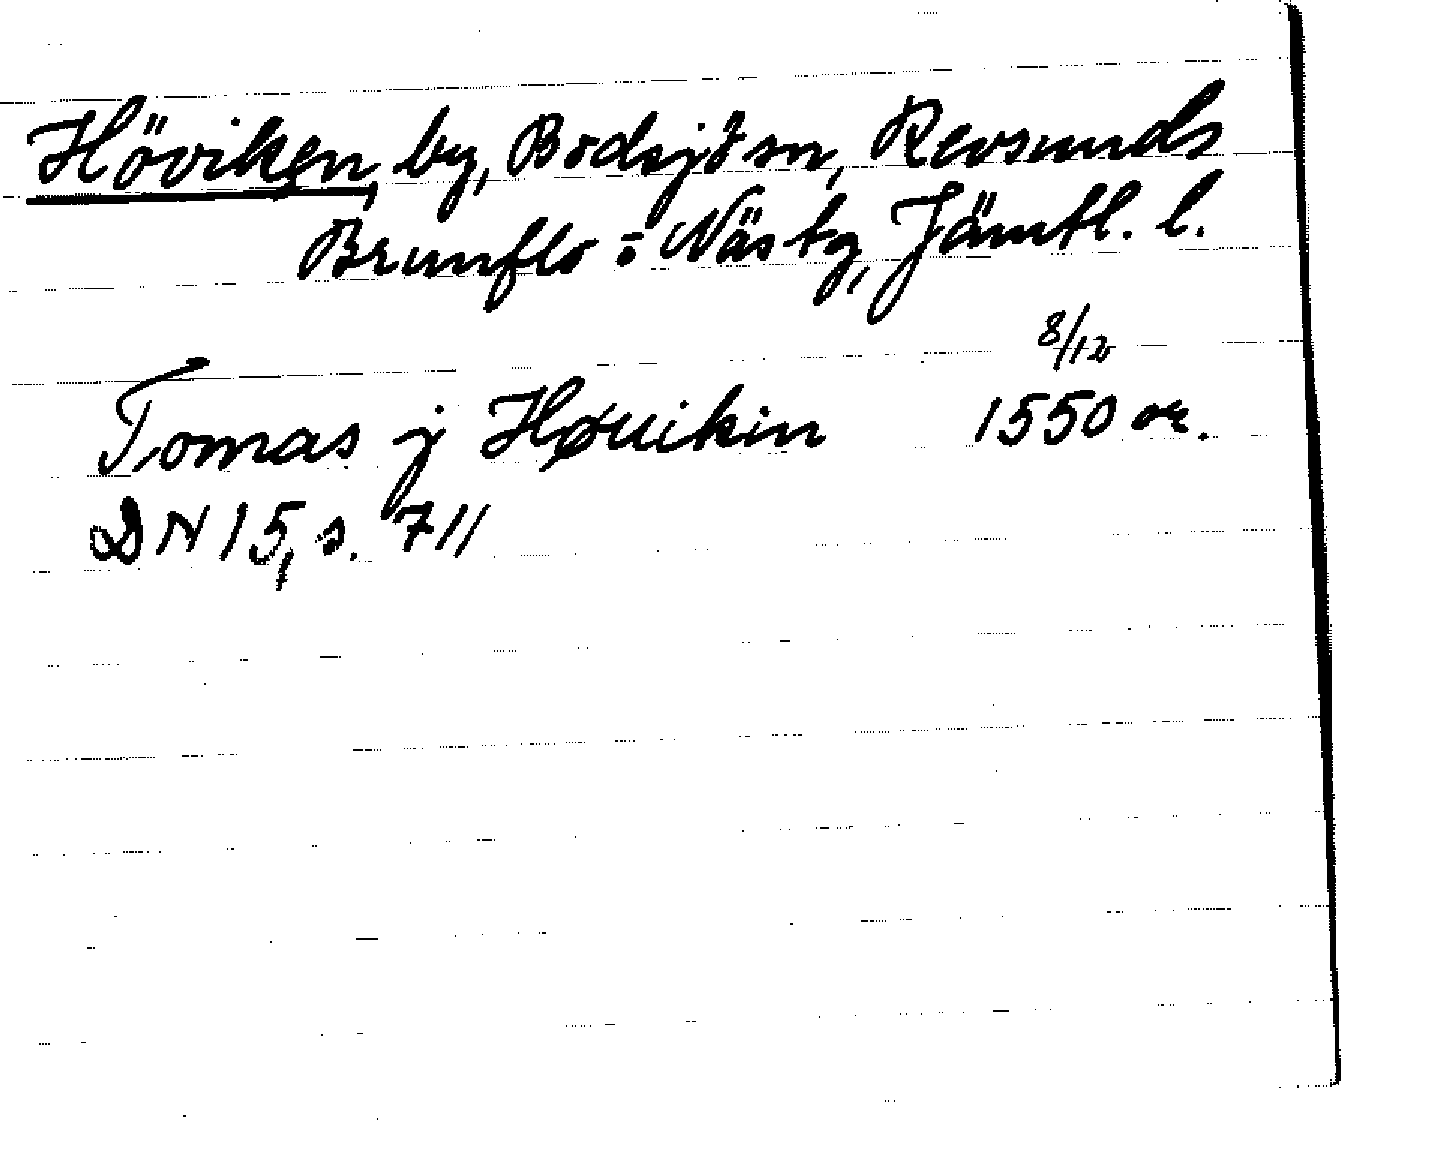 Höviken, by, Bodsjö sn, Revsunds
Brunflo o Näs tg, Jämtl. l.
8/12
Tomas j Høuikin 1550 or.
DN 15, s. 711